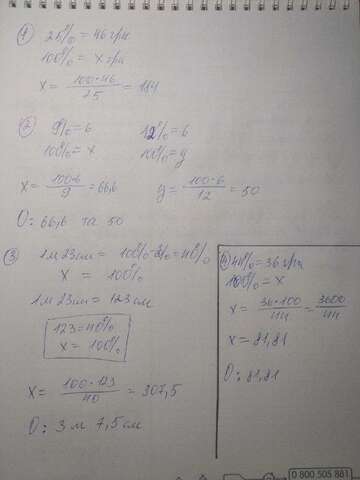 1) 25% = 46 грн
100% = x грн
x = 100·46 / 25 = 184
2) 9% = 6 12% = 6
100% = x 100% = y
x = 100·6 / 9 = 66,6 y = 100·6 / 12 = 50
О: 66,6 та 50
3) 1м 23см = 40%
x = 100%
1м 23см = 123см
123 = 40%
x = 100%
x = 100·123 / 40 = 307,5
О: 3 м 7,5 см
4) 44% = 36 грн
100% = x
x = 36·100 / 44 = 3600 / 44
x = 81,81
О: 81,81
0 800 505 881